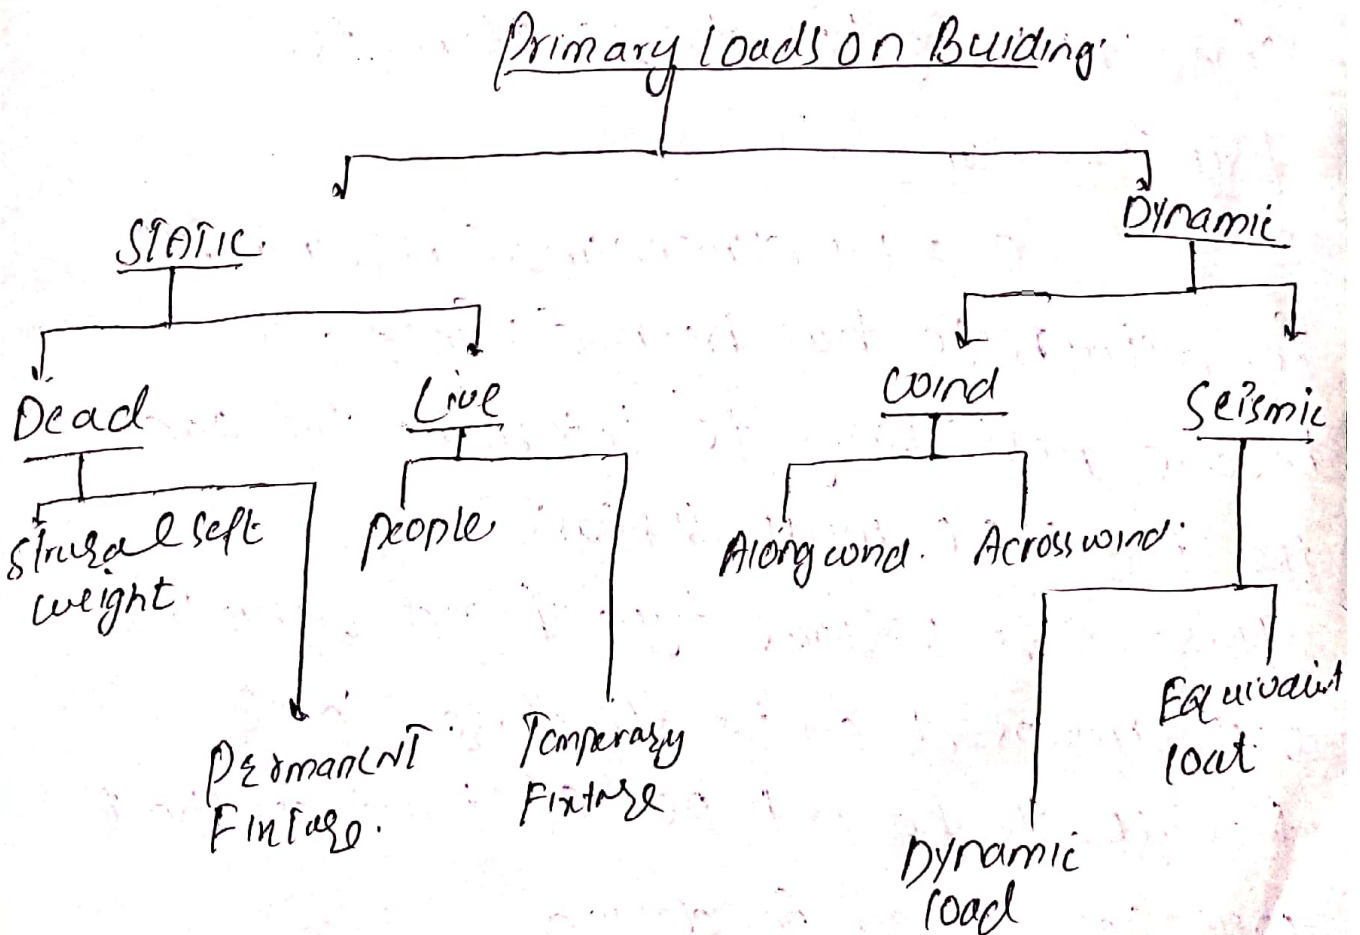 Primary loads on Buiding
STATIC
Dynamic
Dead
Live
wind
Seismic
self
weight
people
Along wind
Across wind
Permanent
Fixture
Temperary
Fixture
Equivalent
load
Dynamic
load